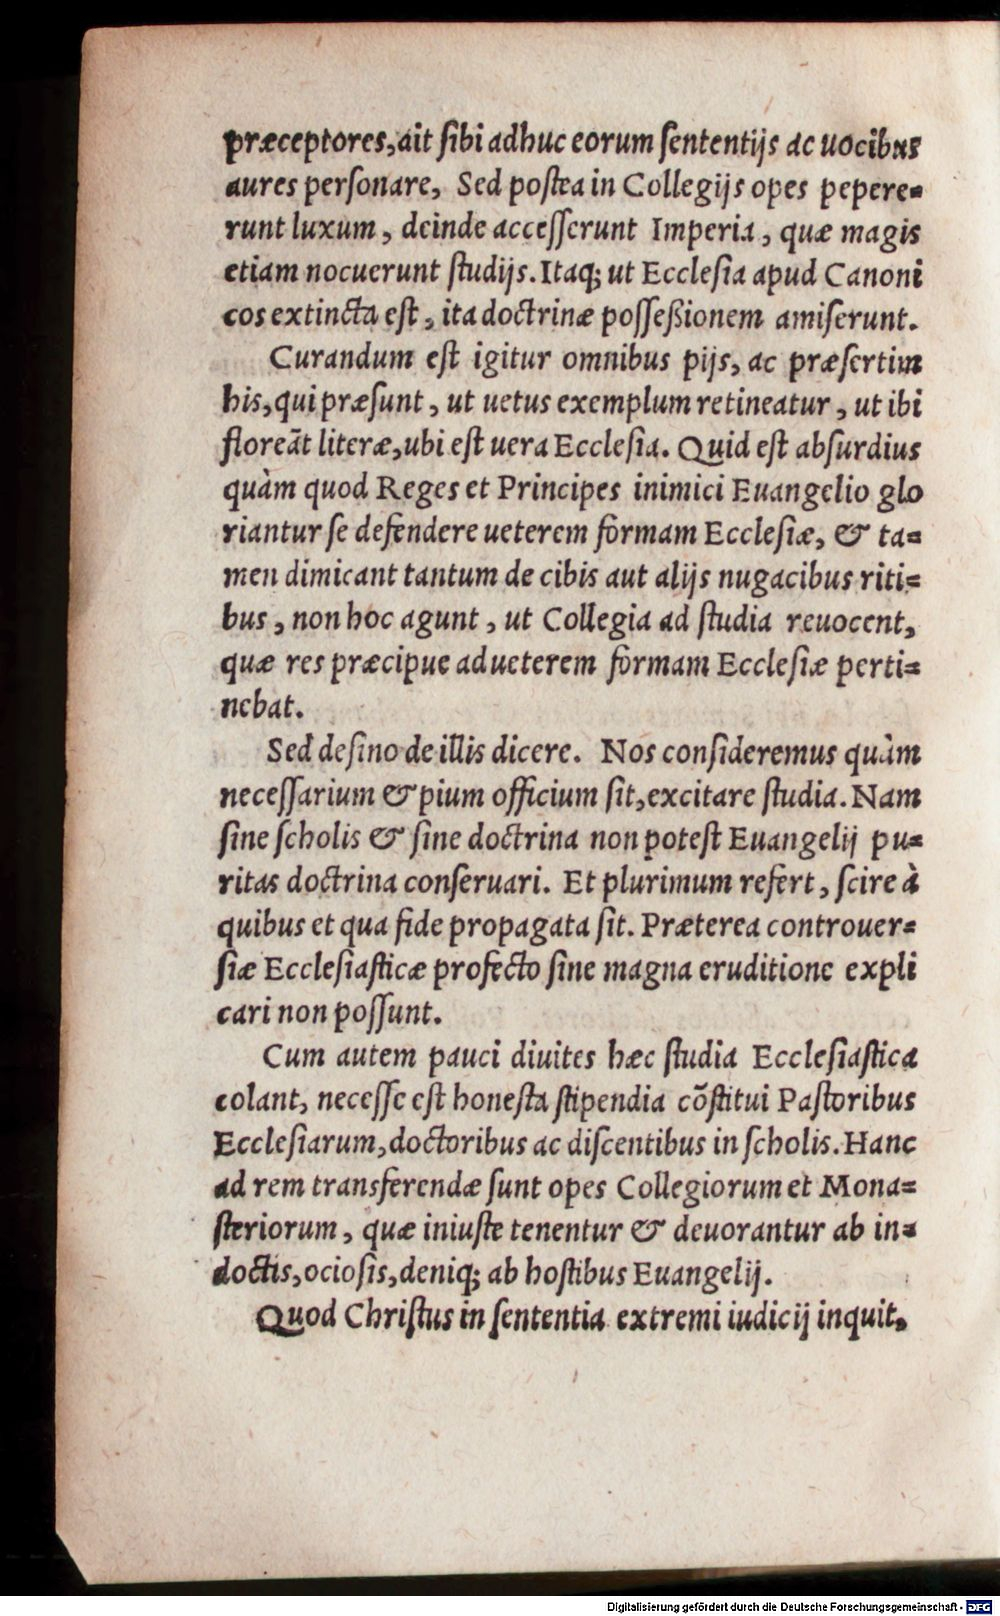 præceptores, ait ſibi adhuc eorum ſententijs ac uocibus
aures perſonare, Sed poſtea in Collegijs opes pepere=
runt luxum, deinde acceſſerunt Imperia, quæ magis
etiam nocuerunt ſtudijs. Itaq; ut Eccleſia apud Canoni
cos extincta eſt, ita doctrinæ poſſeßionem amiſerunt.
Curandum eſt igitur omnibus pijs, ac præſertim
his, qui præſunt, ut uetus exemplum retineatur, ut ibi
floreāt literæ, ubi eſt uera Eccleſia. Quid eſt abſurdius
quàm quod Reges et Principes inimici Euangelio glo
riantur ſe defendere ueterem formam Eccleſiæ, & ta=
men dimicant tantum de cibis aut alijs nugacibus riti=
bus, non hoc agunt, ut Collegia ad ſtudia reuocent,
quæ res præcipue ad ueterem formam Eccleſiæ perti=
nebat.
Sed deſino de illis dicere. Nos conſideremus quàm
neceſſarium & pium officium ſit, excitare ſtudia. Nam
ſine ſcholis & ſine doctrina non poteſt Euangelij pu=
ritas doctrina conſeruari. Et plurimum refert, ſcire à
quibus et qua fide propagata ſit. Præterea controuer=
ſiæ Eccleſiaſticæ profecto ſine magna eruditione expli
cari non poſſunt.
Cum autem pauci diuites hæc ſtudia Eccleſiaſtica
colant, neceſſe eſt honeſta ſtipendia cōſtitui Paſtoribus
Eccleſiarum, doctoribus ac diſcentibus in ſcholis. Hanc
ad rem transferendæ ſunt opes Collegiorum et Mona=
ſteriorum, quæ iniuſte tenentur & deuorantur ab in=
doctis, ocioſis, deniq; ab hoſtibus Euangelij.
Quod Chriſtus in ſententia extremi iudicij inquit,
Digitalisierung gefördert durch die Deutsche Forschungsgemeinschaft - DFG